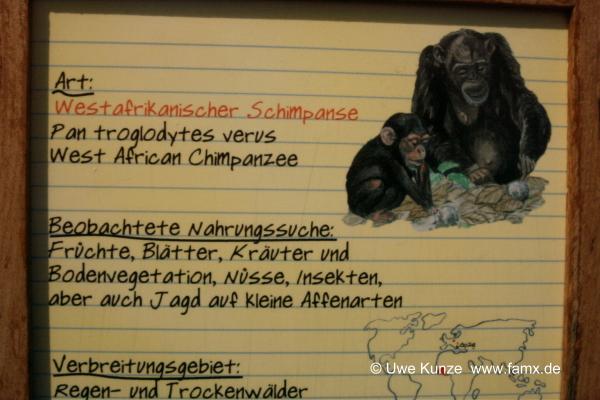 Art:
Westafrikanischer Schimpanse
Pan troglodytes verus
West African Chimpanzee
Beobachtete Nahrungssuche:
Früchte, Blätter, Kräuter und
Bodenvegetation, Nüsse, Insekten,
aber auch Jagd auf kleine Affenarten
Leipzig
Verbreitungsgebiet:
Regen- und Trockenwälder
© Uwe Kunze www.famx.de